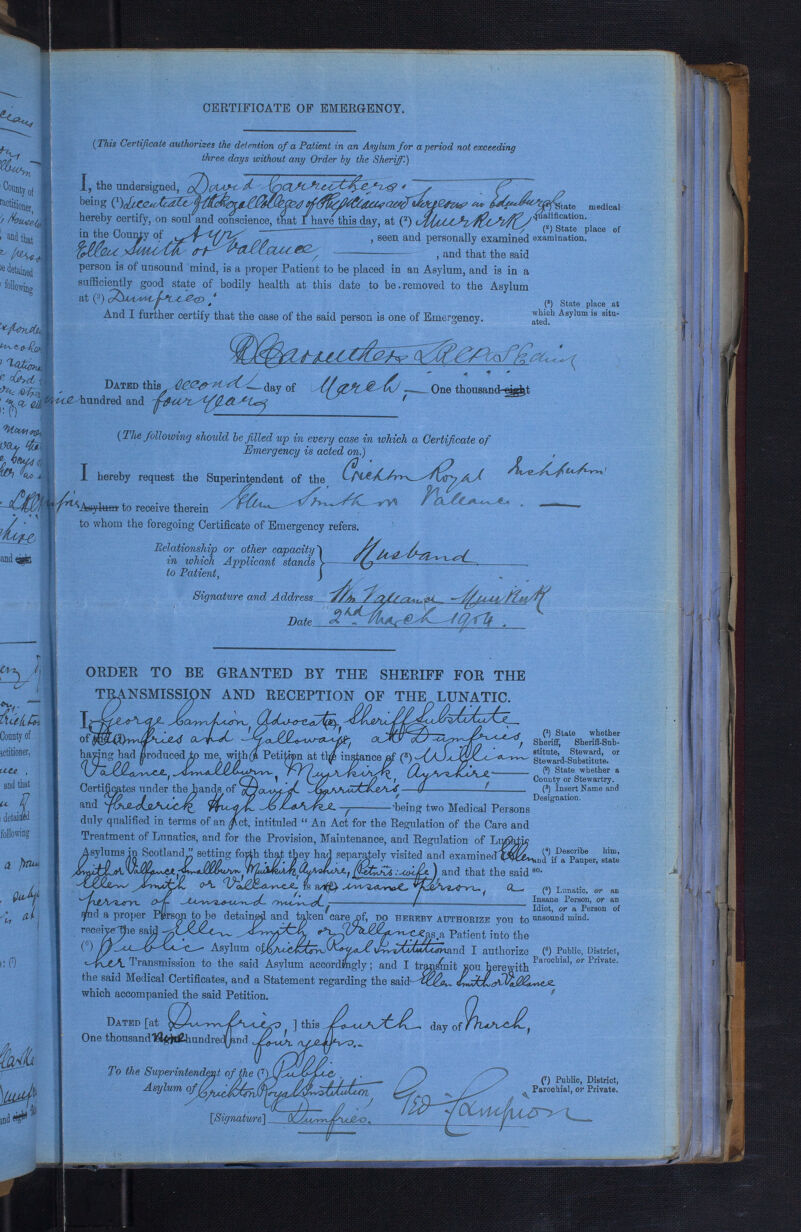 CERTIFICATE OF EMERGENCY.
(This Certificate authorizes the detention of a Patient in an Asylum for a period not exceeding
three days without any Order by the Sheriff.)
I, the undersigned, David Carruthers.
being (¹) Licentiate of the Royal Colleges of Physicians and Surgeons in Edinburgh
(¹) State medical qualification.
hereby certify, on soul and conscience, that I have this day, at (²) Muirkirk
in the County of Ayr, seen and personally examined
(²) State place of examination.
Ellen Smith or Vallance, , and that the said
person is of unsound mind, is a proper Patient to be placed in an Asylum, and is in a
sufficiently good state of bodily health at this date to be removed to the Asylum
at (³) Dumfries.
(³) State place at which Asylum is situated.
And I further certify that the case of the said person is one of Emergency.
D Carruthers L.R.C.P. & S. Edin
DATED this second day of March, One thousand eight
nine hundred and four years
(The following should be filled up in every case in which a Certificate of
Emergency is acted on.)
I hereby request the Superintendent of the Crichton Royal Institution
Dumfries Asylum to receive therein Ellen Smith or Vallance.
to whom the foregoing Certificate of Emergency refers.
Relationship or other capacity
in which Applicant stands
to Patient,
Husband
Signature and Address Wm Vallance Muirkirk
Date 2nd March 1904.
ORDER TO BE GRANTED BY THE SHERIFF FOR THE
TRANSMISSION AND RECEPTION OF THE LUNATIC.
I, George Campion, Advocate, Sheriff Substitute
of Dumfries and Galloway, at Dumfries,
(¹) State whether Sheriff, Sheriff-Substitute, Steward, or Steward-Substitute.
having had produced to me, with a Petition at the instance of (³) William
Vallance, Smallburn, Muirkirk, Ayrshire
(²) State whether a County or Stewartry.
Certificates under the hands of David Carruthers,
(³) Insert Name and Designation.
and Frederick Hugh Clarke, being two Medical Persons
duly qualified in terms of an Act, intituled “An Act for the Regulation of the Care and
Treatment of Lunatics, and for the Provision, Maintenance, and Regulation of Lunatic
Asylums in Scotland,” setting forth that they had separately visited and examined (⁴) Ellen
(⁴) Describe him, and if a Pauper, state so.
Smith or Vallance, Smallburn Muirkirk, Ayrshire, (Petnr's: wife) and that the said
Ellen Smith or Vallance is an (⁵) insane person, a
person of unsound mind,
(⁵) Lunatic, or an Insane Person, or an Idiot, or a Person of unsound mind.
and a proper Person to be detained and taken care of, DO HEREBY AUTHORIZE you to
receive the said Ellen Smith or Vallance as a Patient into the
(⁶) Public Asylum of Crichton Royal Institution and I authorize
(⁶) Public, District, Parochial, or Private.
her Transmission to the said Asylum accordingly; and I transmit you herewith
the said Medical Certificates, and a Statement regarding the said Ellen Smith or Vallance
which accompanied the said Petition.
DATED [at Dumfries, ] this fourth day of March,
One thousand nine hundred and four years.
To the Superintendent of the (⁷) Public
Asylum of Crichton Royal Institution,
(⁷) Public, District, Parochial, or Private.
[Signature] Dumfries. Geo Campion